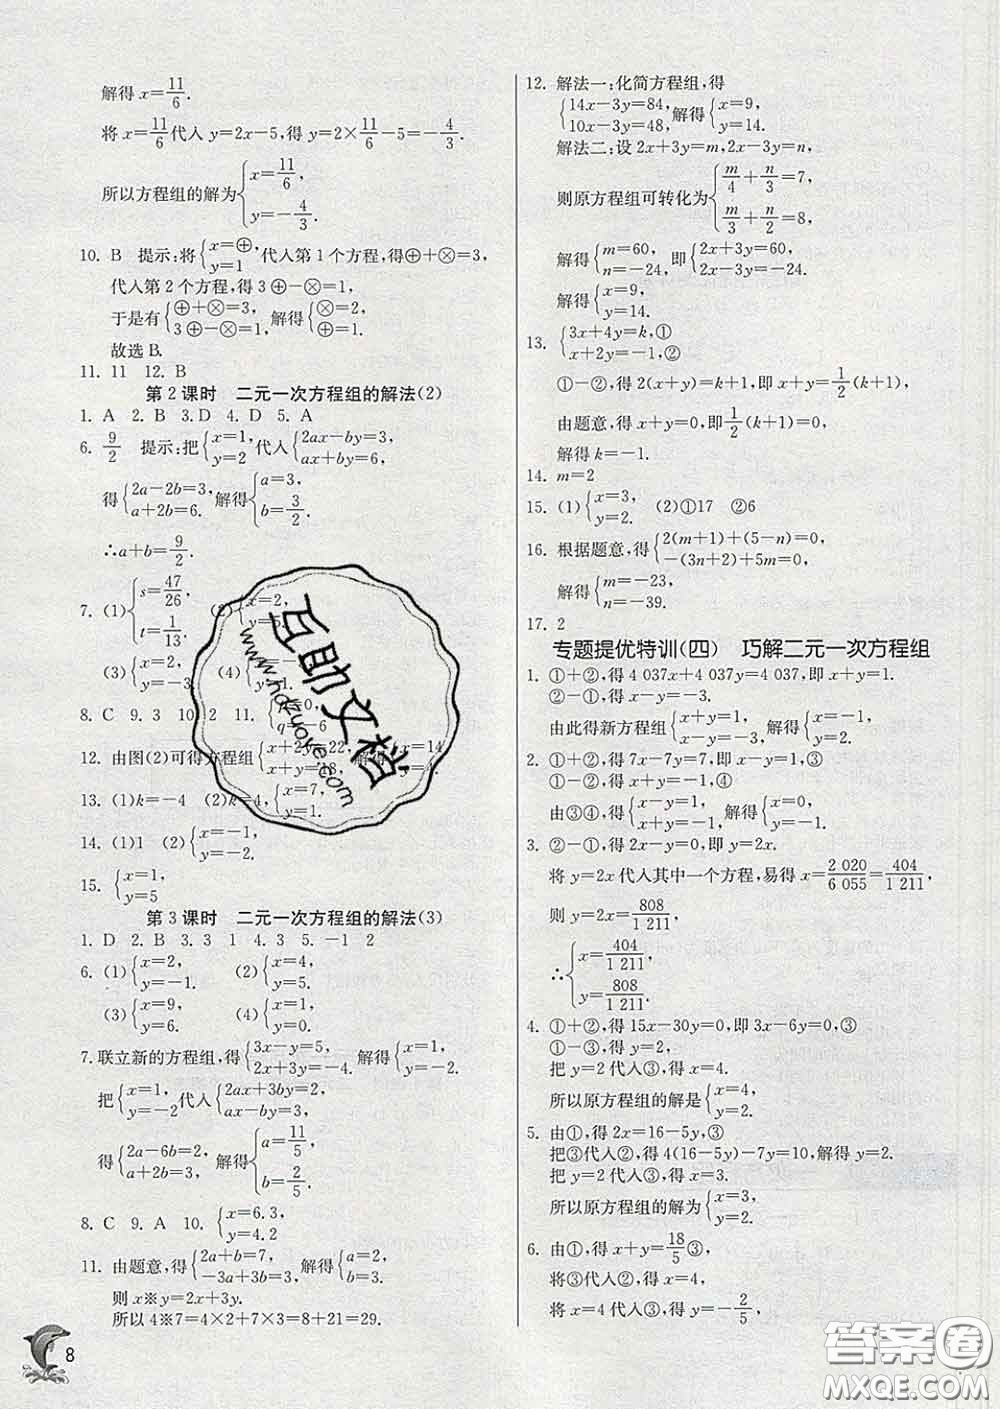 解得 x=11/6.
将 x=11/6 代入 y=2x-5,得 y=2×11/6-5=-4/3.
所以方程组的解为{x=11/6, y=-4/3.
10. B 提示:将{x=⊕, y=1 代入第 1 个方程,得⊕+⊗=3,
代入第 2 个方程,得 3⊕-⊗=1,
于是有{⊕+⊗=3, 3⊕-⊗=1, 解得{⊗=2, ⊕=1.
故选 B.
11. 11 12. B
第 2 课时 二元一次方程组的解法(2)
1. A 2. B 3. D 4. D 5. A
6. 9/2 提示:把{x=1, y=2 代入{2ax-by=3, ax+by=6,
得{2a-2b=3, a+2b=6. 解得{a=3, b=3/2.
∴a+b=9/2.
7. (1){s=47/26, t=1/13. (2){x=2, y=5.
8. C 9. 3 10. 2 11. {q=-6
12. 由图(2)可得方程组{x+2y=22, x+y=18, 解得{ y=14
13. (1)k=-4 (2)k=4,{x=1, y=1.
14. (1)1 (2){x=-1, y=-2.
15. {x=1, y=5
第 3 课时 二元一次方程组的解法(3)
1. D 2. B 3. 3 1 4. 3 5. -1 2
6. (1){x=2, y=-1. (2){x=4, y=5.
(3){x=9, y=6. (4){x=1, y=0.
7. 联立新的方程组,得{3x-y=5, 2x+3y=-4. 解得{x=1, y=-2.
把{x=1, y=-2 代入{2ax+3by=2, ax-by=3,
得{2a-6b=2, a+2b=3, 解得{a=11/5, b=2/5.
8. C 9. A 10. {x=6.3, y=4.2
11. 由题意,得{2a+b=7, -3a+3b=3, 解得{a=2, b=3.
则 x※y=2x+3y.
所以 4※7=4×2+7×3=8+21=29.
8
12. 解法一:化简方程组,得
{14x-3y=84, 10x-3y=48, 解得{x=9, y=14.
解法二:设 2x+3y=m,2x-3y=n,
则原方程组可转化为{m/4+n/3=7, m/3+n/2=8,
解得{m=60, n=-24, 即{2x+3y=60, 2x-3y=-24.
解得{x=9, y=14.
13. {3x+4y=k,① x+2y=-1,②
①-②,得 2(x+y)=k+1,即 x+y=1/2(k+1),
由题意,得 x+y=0,即1/2(k+1)=0,
解得 k=-1.
14. m=2
15. (1){x=3, y=2. (2)①17 ②6
16. 根据题意,得{2(m+1)+(5-n)=0, -(3n+2)+5m=0,
解得{m=-23, n=-39.
17. 2
专题提优特训(四) 巧解二元一次方程组
1. ①+②,得 4 037x+4 037y=4 037,即 x+y=1.
②-①,得 x-y=-3.
由此得新方程组{x+y=1, x-y=-3, 解得{x=-1, y=2.
2. ①+②,得 7x-7y=7,即 x-y=1,③
①-②,得 x+y=-1,④
由③④,得{x-y=1, x+y=-1, 解得{x=0, y=-1.
3. ②-①,得 2x-y=0,即 y=2x.
将 y=2x 代入其中一个方程,易得 x=2 020/6 055=404/1 211,
则 y=2x=808/1 211,
∴{x=404/1 211, y=808/1 211.
4. ①+②,得 15x-30y=0,即 3x-6y=0,③
①-③,得 y=2,
把 y=2 代入③,得 x=4.
所以原方程组的解是{x=4, y=2.
5. 由①,得 2x=16-5y,③
把③代入②,得 4(16-5y)-7y=10,解得 y=2.
把 y=2 代入③,得 x=3.
所以原方程组的解为{x=3, y=2.
6. 由①,得 x+y=18/5③,
将③代入②,得 x=4,
将 x=4 代入③,得 y=-2/5,
互助文档
www.hdzuoye.com
答案圈
MXQE.COM